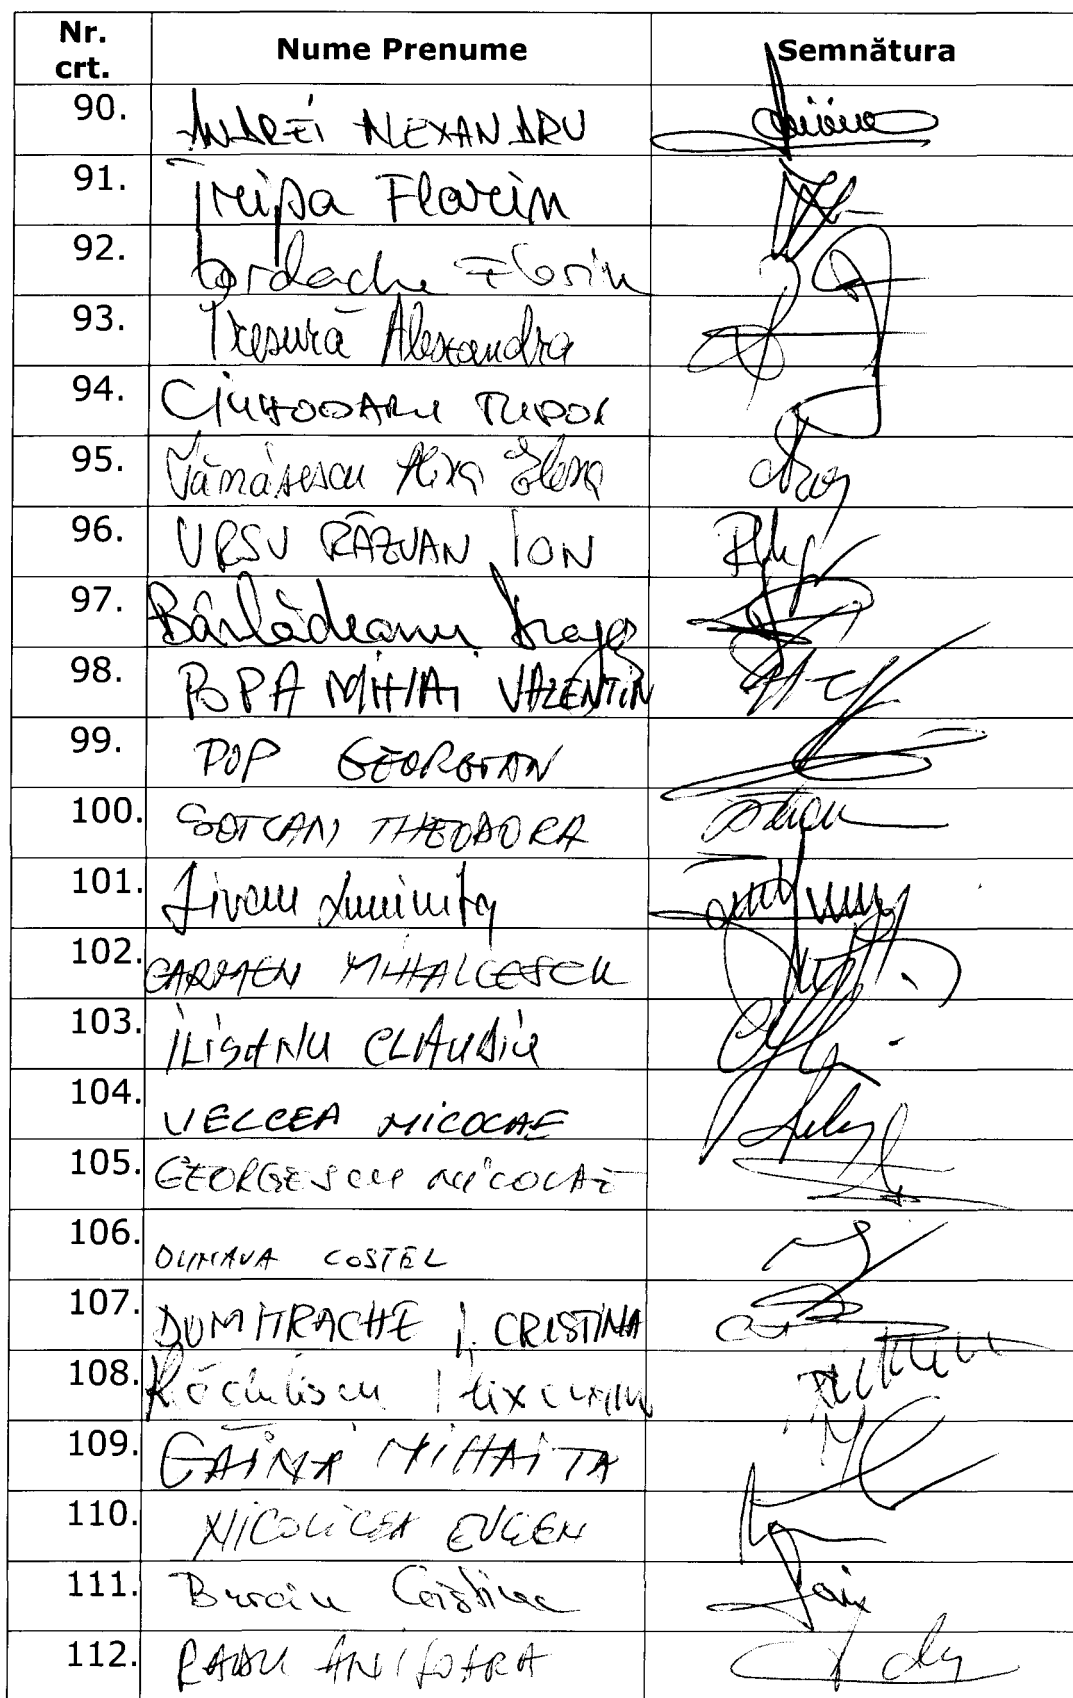 Nr. crt. Nume Prenume Semnătura
90. ANDREI ALEXANDRU
91. Tripa Florin
92. Iordache Florin
93. Presură Alexandra
94. CIUHODARU TUDOR
95. Vămăsescu Alina Elena
96. URSU RĂZVAN ION
97. Bârlădeanu Dragoș
98. POPA MIHAI VALENTIN
99. POP GEORGIAN
100. SOTCAN THEODORA
101. Jivan Luminița
102. CARMEN MIHALCESCU
103. ILIȘANU CLAUDIU
104. VELCEA NICOLAE
105. GEORGESCU NICOLAE
106. DUNAVA COSTEL
107. DUMITRACHE I. CRISTINA
108. Rădulescu Alexandru
109. GĂINĂ MIHĂIȚĂ
110. NICOLICEA EUGEN
111. Burciu Cristina
112. RADU ANIȘOARA